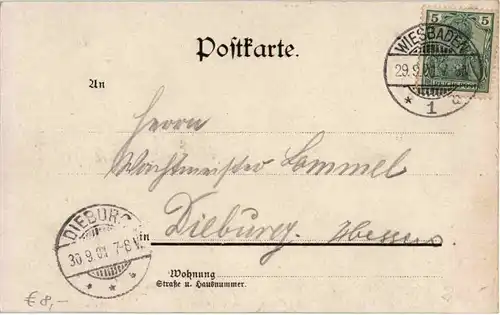 5 5
Postkarte.
WIESBADEN
29.9.00
* 1 a
An
Herrn
Wachtmeister Lommel
Dieburg. Hessen
in
DIEBURG
30.9.00 7-8 V.
* * *
Wohnung
Straße u. Hausnummer.
€ 8,-